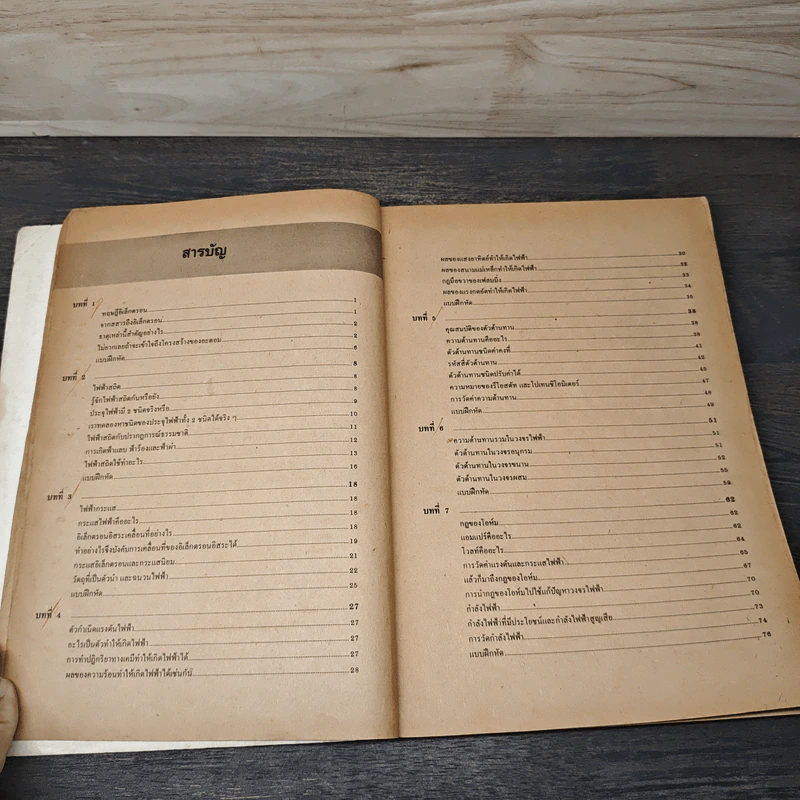 สารบัญ
บทที่ 1 1
ทฤษฎีอิเล็กตรอน 1
จากสสารถึงอิเล็กตรอน 2
ธาตุเหล่านี้สำคัญอย่างไร 2
ไม่ยากเลยถ้าจะเข้าใจถึงโครงสร้างของอะตอม 6
แบบฝึกหัด
บทที่ 2 8
ไฟฟ้าสถิต 8
รู้จักไฟฟ้าสถิตกันหรือยัง 8
ประจุไฟฟ้ามี 2 ชนิดจริงหรือ 9
เราทดลองหาชนิดของประจุไฟฟ้าทั้ง 2 ชนิดได้จริง ๆ 10
ไฟฟ้าสถิตกับปรากฏการณ์ธรรมชาติ 11
การเกิดฟ้าแลบ ฟ้าร้องและฟ้าผ่า 12
ไฟฟ้าสถิตใช้ทำอะไร 13
แบบฝึกหัด 16
บทที่ 3 18
ไฟฟ้ากระแส 18
กระแสไฟฟ้าคืออะไร 18
อิเล็กตรอนอิสระเคลื่อนที่อย่างไร 18
ทำอย่างไรจึงบังคับการเคลื่อนที่ของอิเล็กตรอนอิสระได้ 19
กระแสอิเล็กตรอนและกระแสนิยม 21
วัตถุที่เป็นตัวนำ และฉนวนไฟฟ้า 22
แบบฝึกหัด 25
บทที่ 4 27
ตัวกำเนิดแรงดันไฟฟ้า 27
อะไรเป็นตัวทำให้เกิดไฟฟ้า 27
การทำปฏิกิริยาทางเคมีทำให้เกิดไฟฟ้าได้ 27
ผลของความร้อนทำให้เกิดไฟฟ้าได้เช่นกัน 28
ผลของแสงอาทิตย์ทำให้เกิดไฟฟ้า 30
ผลของสนามแม่เหล็กทำให้เกิดไฟฟ้า 32
กฎมือขวาของเฟลมมิ่ง 33
ผลของแรงกดอัดทำให้เกิดไฟฟ้า 34
แบบฝึกหัด 35
บทที่ 5 38
คุณสมบัติของตัวต้านทาน 38
ความต้านทานคืออะไร 39
ตัวต้านทานชนิดค่าคงที่ 41
รหัสสีตัวต้านทาน 42
ตัวต้านทานชนิดปรับค่าได้ 45
ความหมายของรีโอสตัท และโปเทนชิโอมิเตอร์ 47
การวัดค่าความต้านทาน 48
แบบฝึกหัด 49
บทที่ 6 51
ความต้านทานรวมในวงจรไฟฟ้า 51
ตัวต้านทานในวงจรอนุกรม 51
ตัวต้านทานในวงจรขนาน 52
ตัวต้านทานในวงจรผสม 55
แบบฝึกหัด 59
บทที่ 7 62
กฎของโอห์ม 62
แอมแปร์คืออะไร 62
โวลท์คืออะไร 64
การวัดค่าแรงดันและกระแสไฟฟ้า 65
แล้วก็มาถึงกฎของโอห์ม 67
การนำกฎของโอห์มไปใช้แก้ปัญหาวงจรไฟฟ้า 70
กำลังไฟฟ้า 70
กำลังไฟฟ้าที่มีประโยชน์และกำลังไฟฟ้าสูญเสีย 73
การวัดกำลังไฟฟ้า 74
แบบฝึกหัด 76